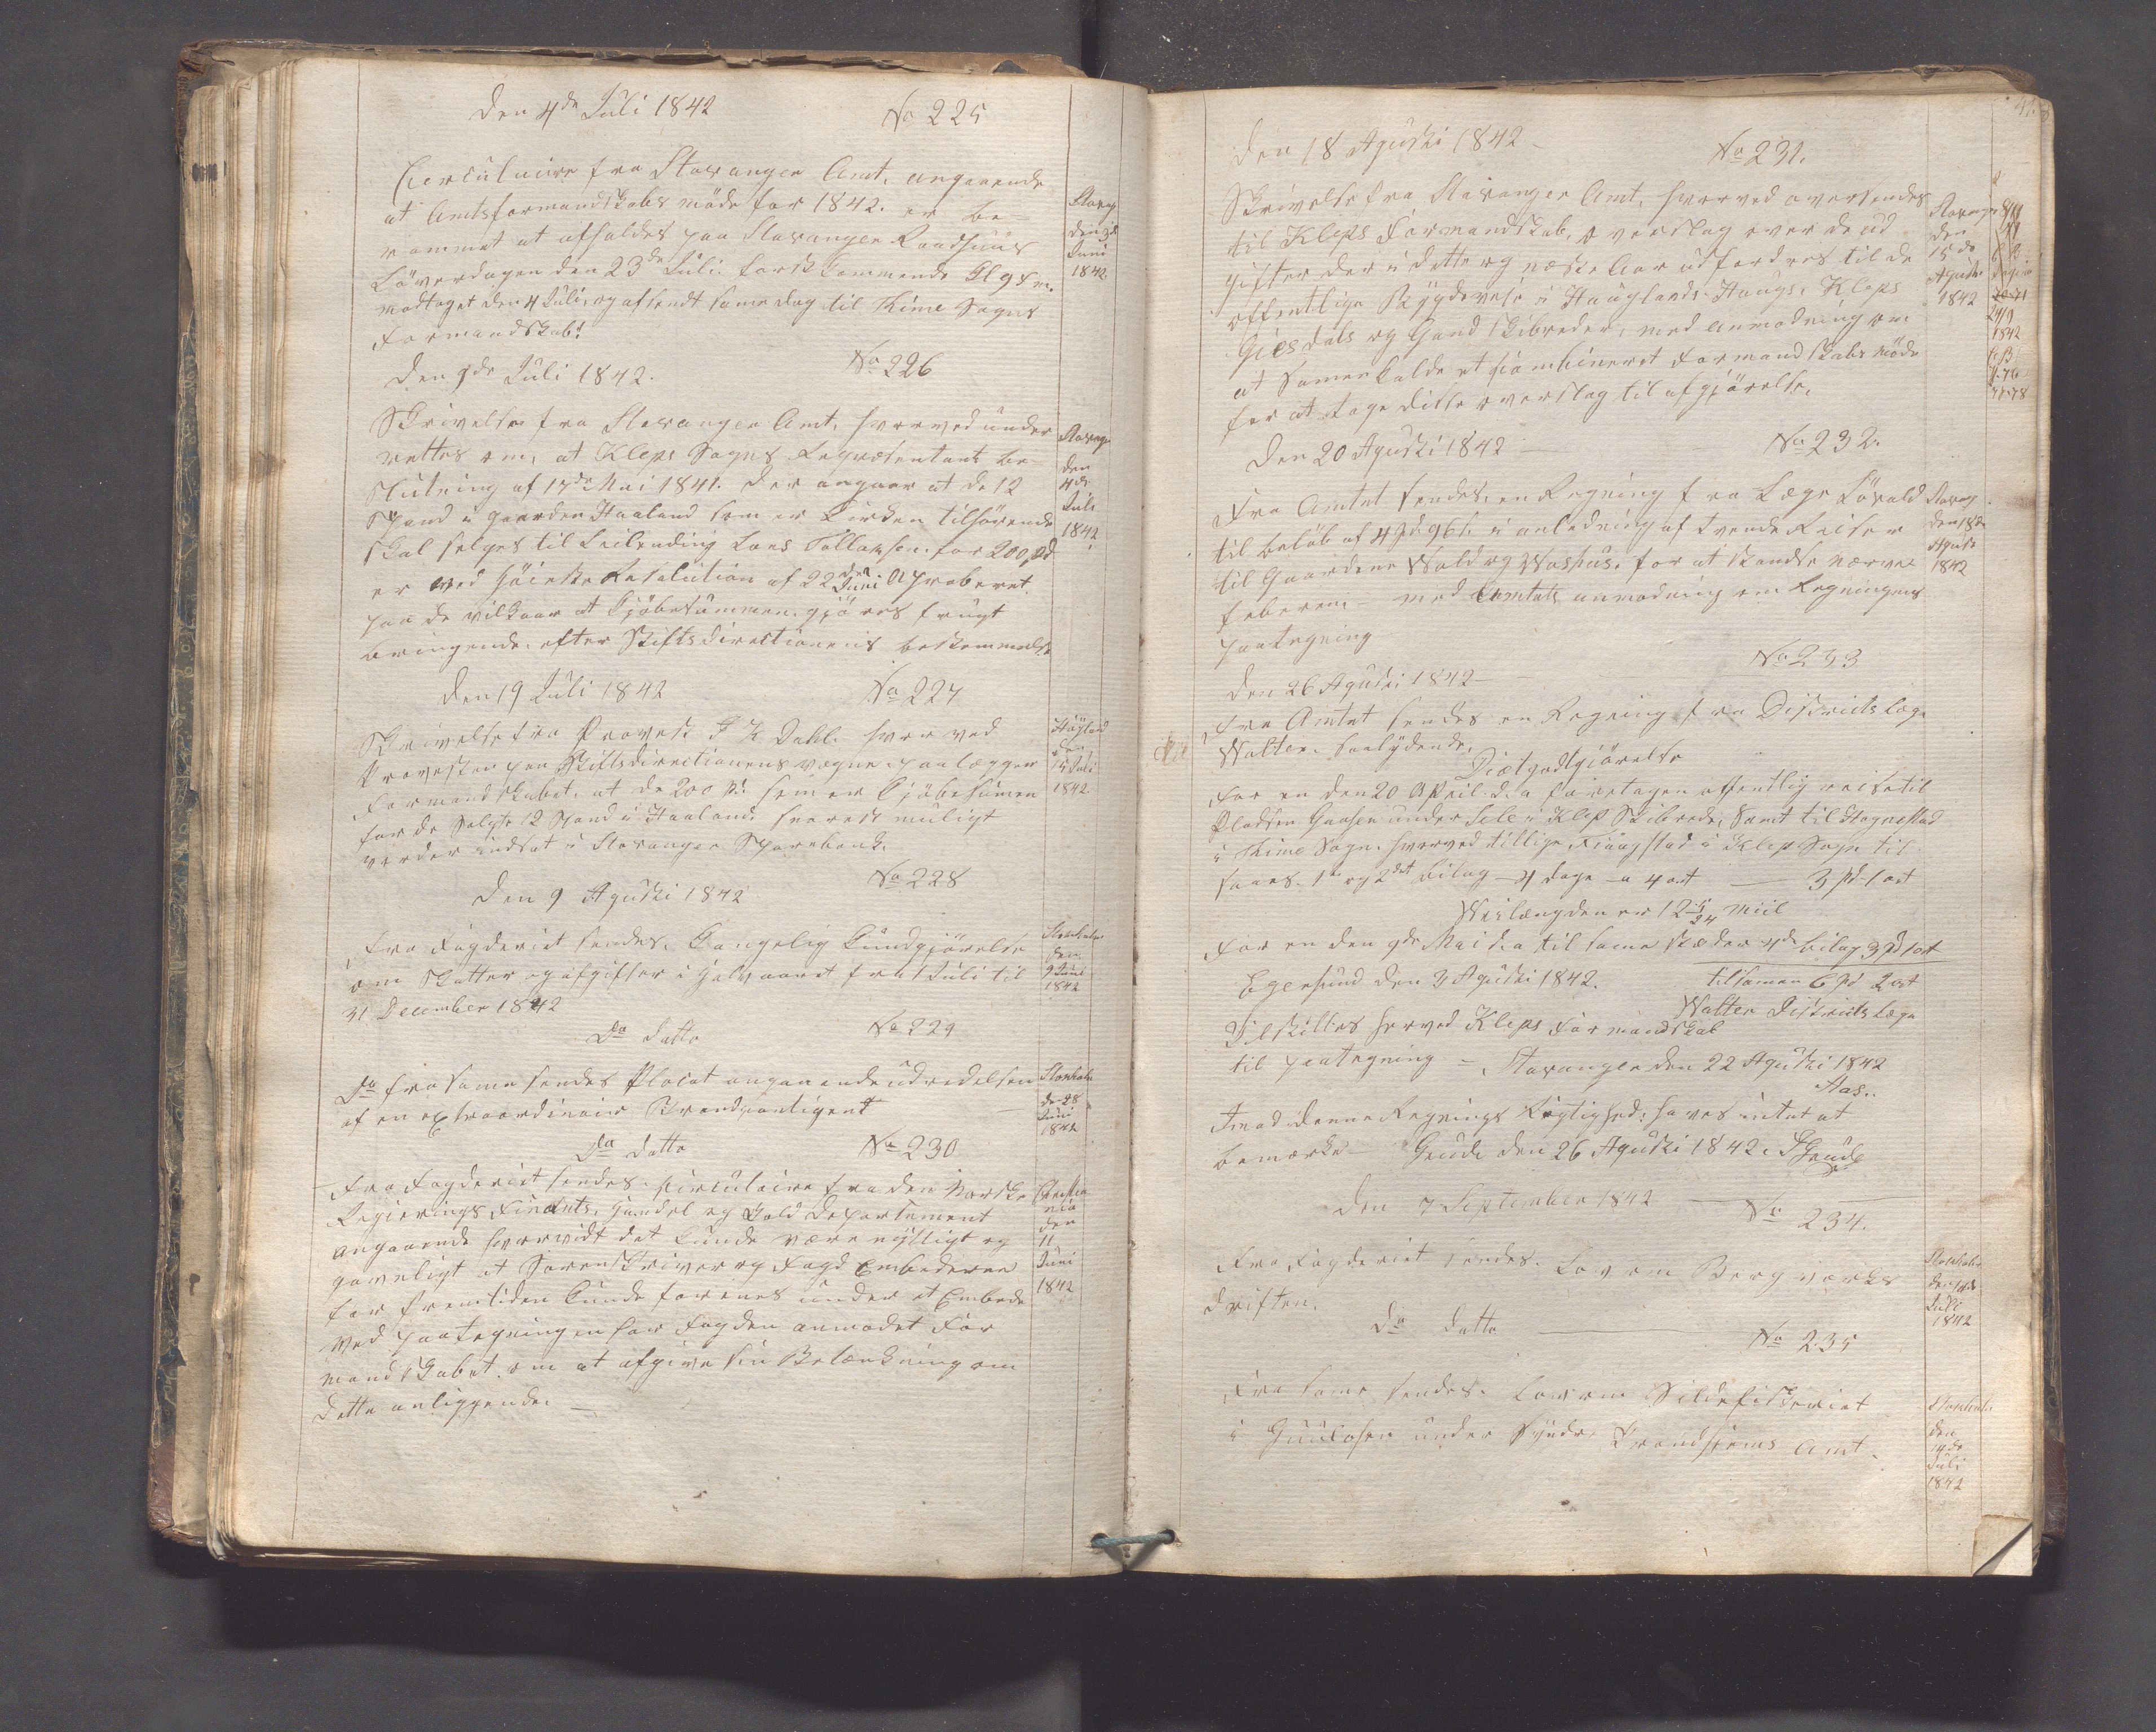 Den 4de Juli 1842
No 225
Circulaire fra Stavanger Amt, angaaende
at Amtsformandskabs möde for 1842. er be-
rammet at afholdes paa Stavanger Raadhuus
Löverdagen den 23de Juli. förstkommende Kl 9 f m.
modtaget den 4 Juli, og afsendt same dag til Thime Sogns
Formandskab!
Stavang
den
Juni
1842.
Den 9de Juli 1842.
No 226
Skrivelse fra Stavanger Amt, hvorved under
rettes om, at Kleps Sogns Repræsentants be-
slutning af 17de Mai 1841. der angaar at de 12
Spand i gaarden Haaland som er Kirken tilhörende
skal selges til Leilending Lars Tollaksen for 200 pd
er ved höieste Resolution af 22den Juni Aproberet
paa de vilkaar at Kjöbesummen gjöres frugt
bringende efter Stiftsdirectionens bestemmelse
Stavang
den
4de
Juli
1842
Den 19 Juli 1842
No 227
Skrivelse fra Provst Dahl hvorved
Provsten paa Stiftsdirectionens vegne paalægger
Formandskabet, at de 200 pd som er Kjöbesumen
for de Solgte 12 Spand i Haaland snarest muligt
vorder indsat i Stavanger Sparebank.
Höyland
den
15 Juli
1842
Den 9 Agusti 1842
No 228
Fra Fogderiet sendes. Kongelig Kundgjörelse
om Skatter og afgifter i halvaaret fra 1 Juli til
31 December 1842
den
9 Juni
1842
Do Datto
No 229
Do fra same sendes Placat angaaende udredelsen
af en extraordinair Brandcontigent
de 28
Juni
1842
Do Datto
No 230
Fra Fogderiet sendes. Circulaire fra den Norske
Regierings Finants, Handel og Told Departement
angaaende hvorvidt det kunde være nyttigt og
gavnligt at Sorenskriver og Fogd Embederne
for fremtiden kunde forenes under et Embede
ved paategningen har Fogden anmodet For
mandskabet om at afgive sin Betænkning om
dette anliggende.
Christia
nia
den
11
Juni
1842
Den 18 Agusti 1842
No 231.
Skrivelse fra Stavanger Amt, hvorved oversendes
til Kleps Formandskab, overslag over de ud
gifter der i dette og næste Aar udfordres til de
offentlige Bygdeveie i Haaglands Haugs, Kleps
Giesdals og Gand skibreder, med anmodning om
at Samenkalde et combineret Formandskabs möde
for at tage disse overslag til afgjörelse.
Stavanger
den
15 de
Agusti
1842
24/9
1842
Den 20 Agusti 1842
No 232.
Fra Amtet sendes en Regning fra Læge Lövold
til belöb af 4 pd 96 s. i anledning af tvende Reiser
til Gaardene Wold og Washus. for at standse nerve
feberen med Amtets anmodning om Regningens
paategning
Stavang
den 18de
Agusti
1842
Den 26 Agusti 1842
No 233
Fra Amtet sendes en Regning fra Districts Læge
Walter. saalydende.
Diætgodtgjörelse
For en den 20 April d. a foretagen offentlig reise til
Pladsen Gaasen under Sele i Klep Skibrede, Samt til Hognestad
i Thime Sogn. hvorved tillige Fiaagstad i Klep Sogn til
saaes. 1te og 2det bilag – 4 dage – a 4 ort — 3 pd 1 ort
Weilængden er 12 Miil
For en den 9de Mai d. a til same steder 4de bilag 3 pd 1 ort
Egersund den 3 Agusti 1842.
tilsamen 6 pd 2 ort
Walter Districts Læge
Tilstilles herved Kleps Formandskab
til paategning – Stavanger den 22 Agusti 1842
Aas.
Imod denne Regnings Rigtighed: haves intet at
bemærke – Grude den 26 Agusti 1842. Grude
Den 7 September 1842
No 234.
Fra Fogderiet sendes. Lov om Bergværks
driften.
Juli
1842
Do Datto
No 235
Fra same sendes. Lov om Sildefiskeriet
i Guulosen under Syndre Trondhiems Amt.
den
14de
Juli
1842